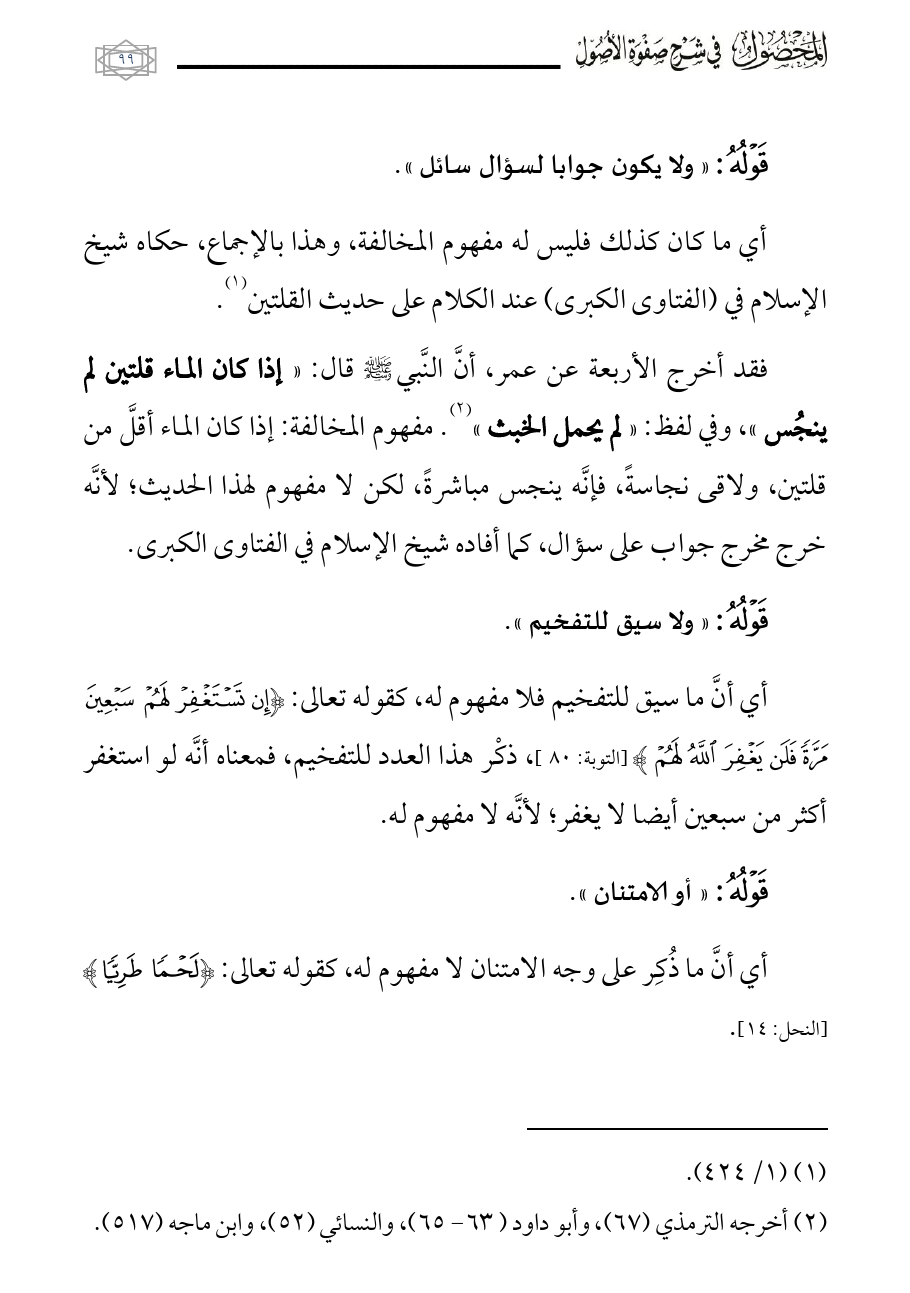 المحصول في شرح صفوة الأصول
٩٩
قَوْلُهُ: « ولا يكون جوابا لسؤال سائل ».
أي ما كان كذلك فليس له مفهوم المخالفة، وهذا بالإجماع، حكاه شيخ
الإسلام في (الفتاوى الكبرى) عند الكلام على حديث القلتين(١).
فقد أخرج الأربعة عن عمر، أنَّ النَّبي ﷺ قال: « إذا كان الماء قلتين لم
ينجُس »، وفي لفظ: « لم يحمل الخبث »(٢). مفهوم المخالفة: إذا كان الماء أقلَّ من
قلتين، ولاقى نجاسةً، فإنَّه ينجس مباشرةً، لكن لا مفهوم لهذا الحديث؛ لأنَّه
خرج مخرج جواب على سؤال، كما أفاده شيخ الإسلام في الفتاوى الكبرى.
قَوْلُهُ: « ولا سيق للتفخيم ».
أي أنَّ ما سيق للتفخيم فلا مفهوم له، كقوله تعالى: ﴿إِن تَسْتَغْفِرْ لَهُمْ سَبْعِينَ
مَرَّةً فَلَن يَغْفِرَ ٱللَّهُ لَهُمْ ﴾ [التوبة: ٨٠ ]، ذكْر هذا العدد للتفخيم، فمعناه أنَّه لو استغفر
أكثر من سبعين أيضا لا يغفر؛ لأنَّه لا مفهوم له.
قَوْلُهُ: « أو الامتنان ».
أي أنَّ ما ذُكِر على وجه الامتنان لا مفهوم له، كقوله تعالى: ﴿لَحْمًا طَرِيًّا ﴾
[النحل: ١٤].
(١) (١/ ٤٢٤).
(٢) أخرجه الترمذي (٦٧)، وأبو داود ( ٦٣- ٦٥)، والنسائي (٥٢)، وابن ماجه (٥١٧).